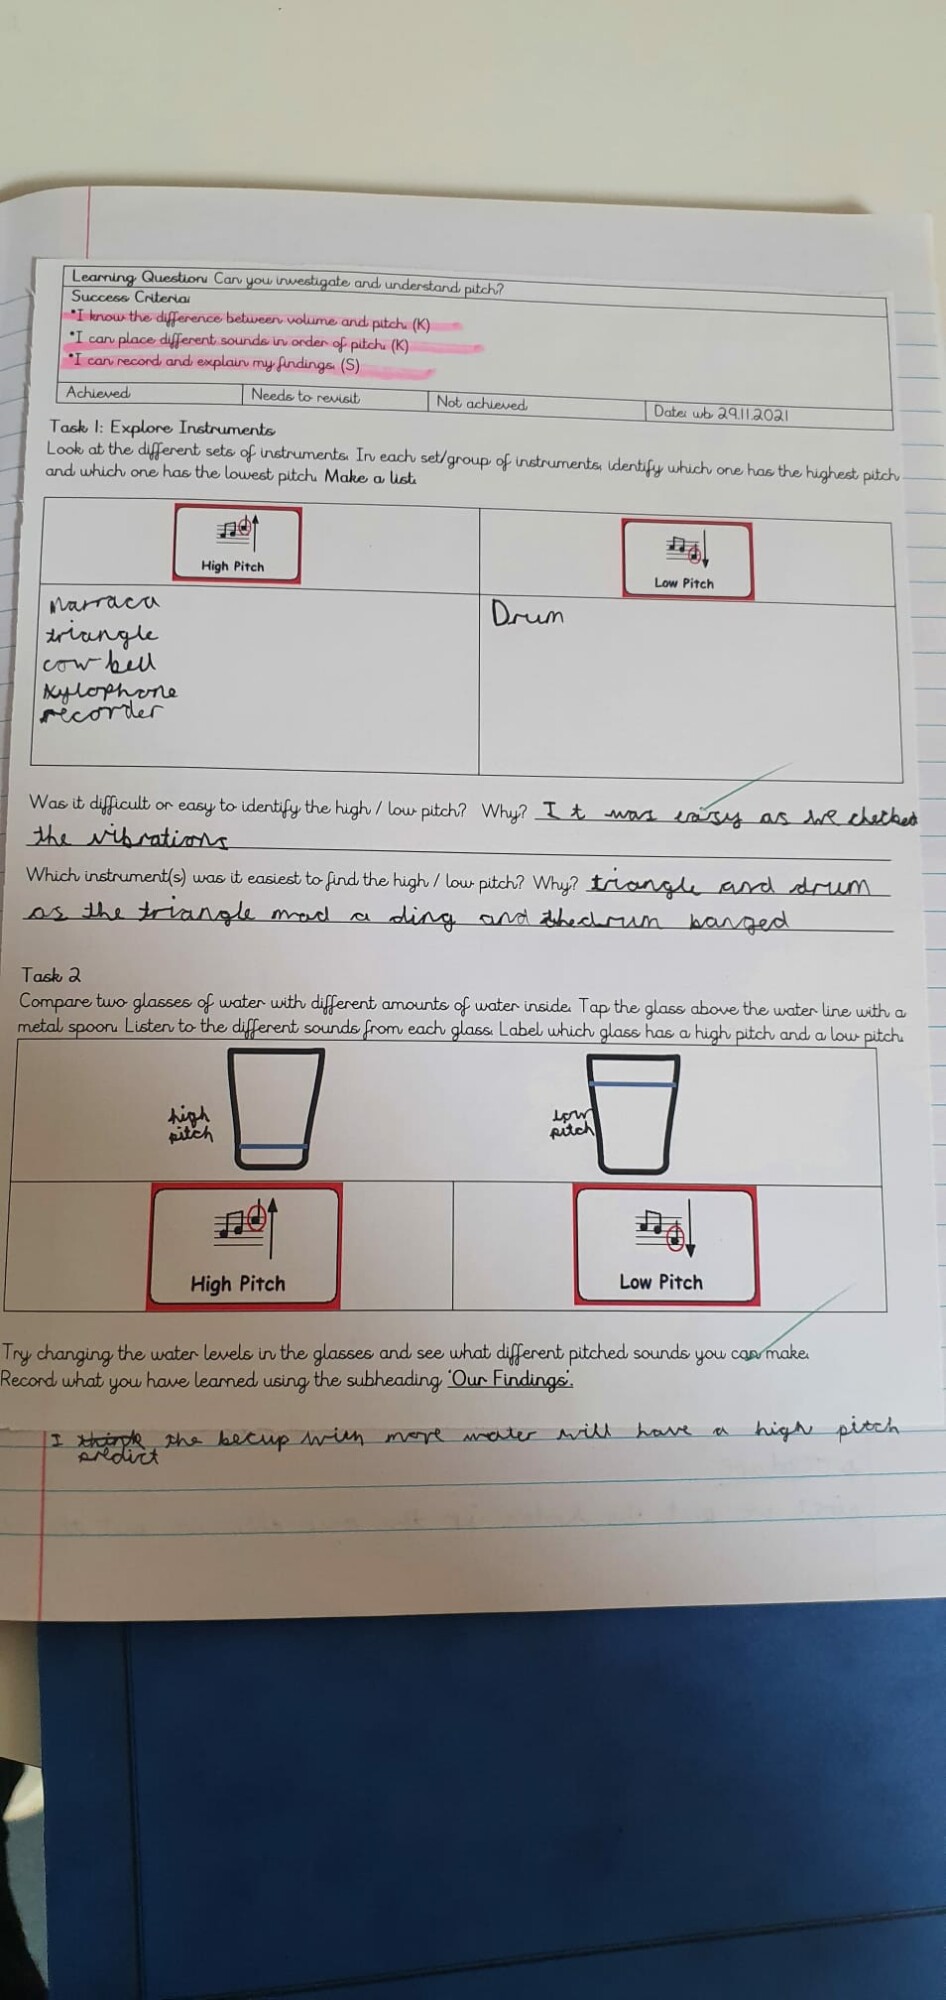 Learning Question: Can you investigate and understand pitch?
Success Criteria:
*I know the difference between volume and pitch. (K)
*I can place different sounds in order of pitch. (K)
*I can record and explain my findings. (S)
Achieved Needs to revisit Not achieved Date: wb 29.11.2021
Task 1: Explore Instruments
Look at the different sets of instruments. In each set/group of instruments, identify which one has the highest pitch
and which one has the lowest pitch. Make a list.
High Pitch
Low Pitch
marraca
triangle
cow bell
xylophone
recorder
Drum
Was it difficult or easy to identify the high / low pitch? Why? It was easy as we checked
the vibrations
Which instrument(s) was it easiest to find the high / low pitch? Why? triangle and drum
as the triangle mad a ding and the drum banged
Task 2
Compare two glasses of water with different amounts of water inside. Tap the glass above the water line with a
metal spoon. Listen to the different sounds from each glass. Label which glass has a high pitch and a low pitch.
high
pitch
low
pitch
High Pitch
Low Pitch
Try changing the water levels in the glasses and see what different pitched sounds you can make.
Record what you have learned using the subheading 'Our Findings'.
I think the with more water will have a high pitch
predict